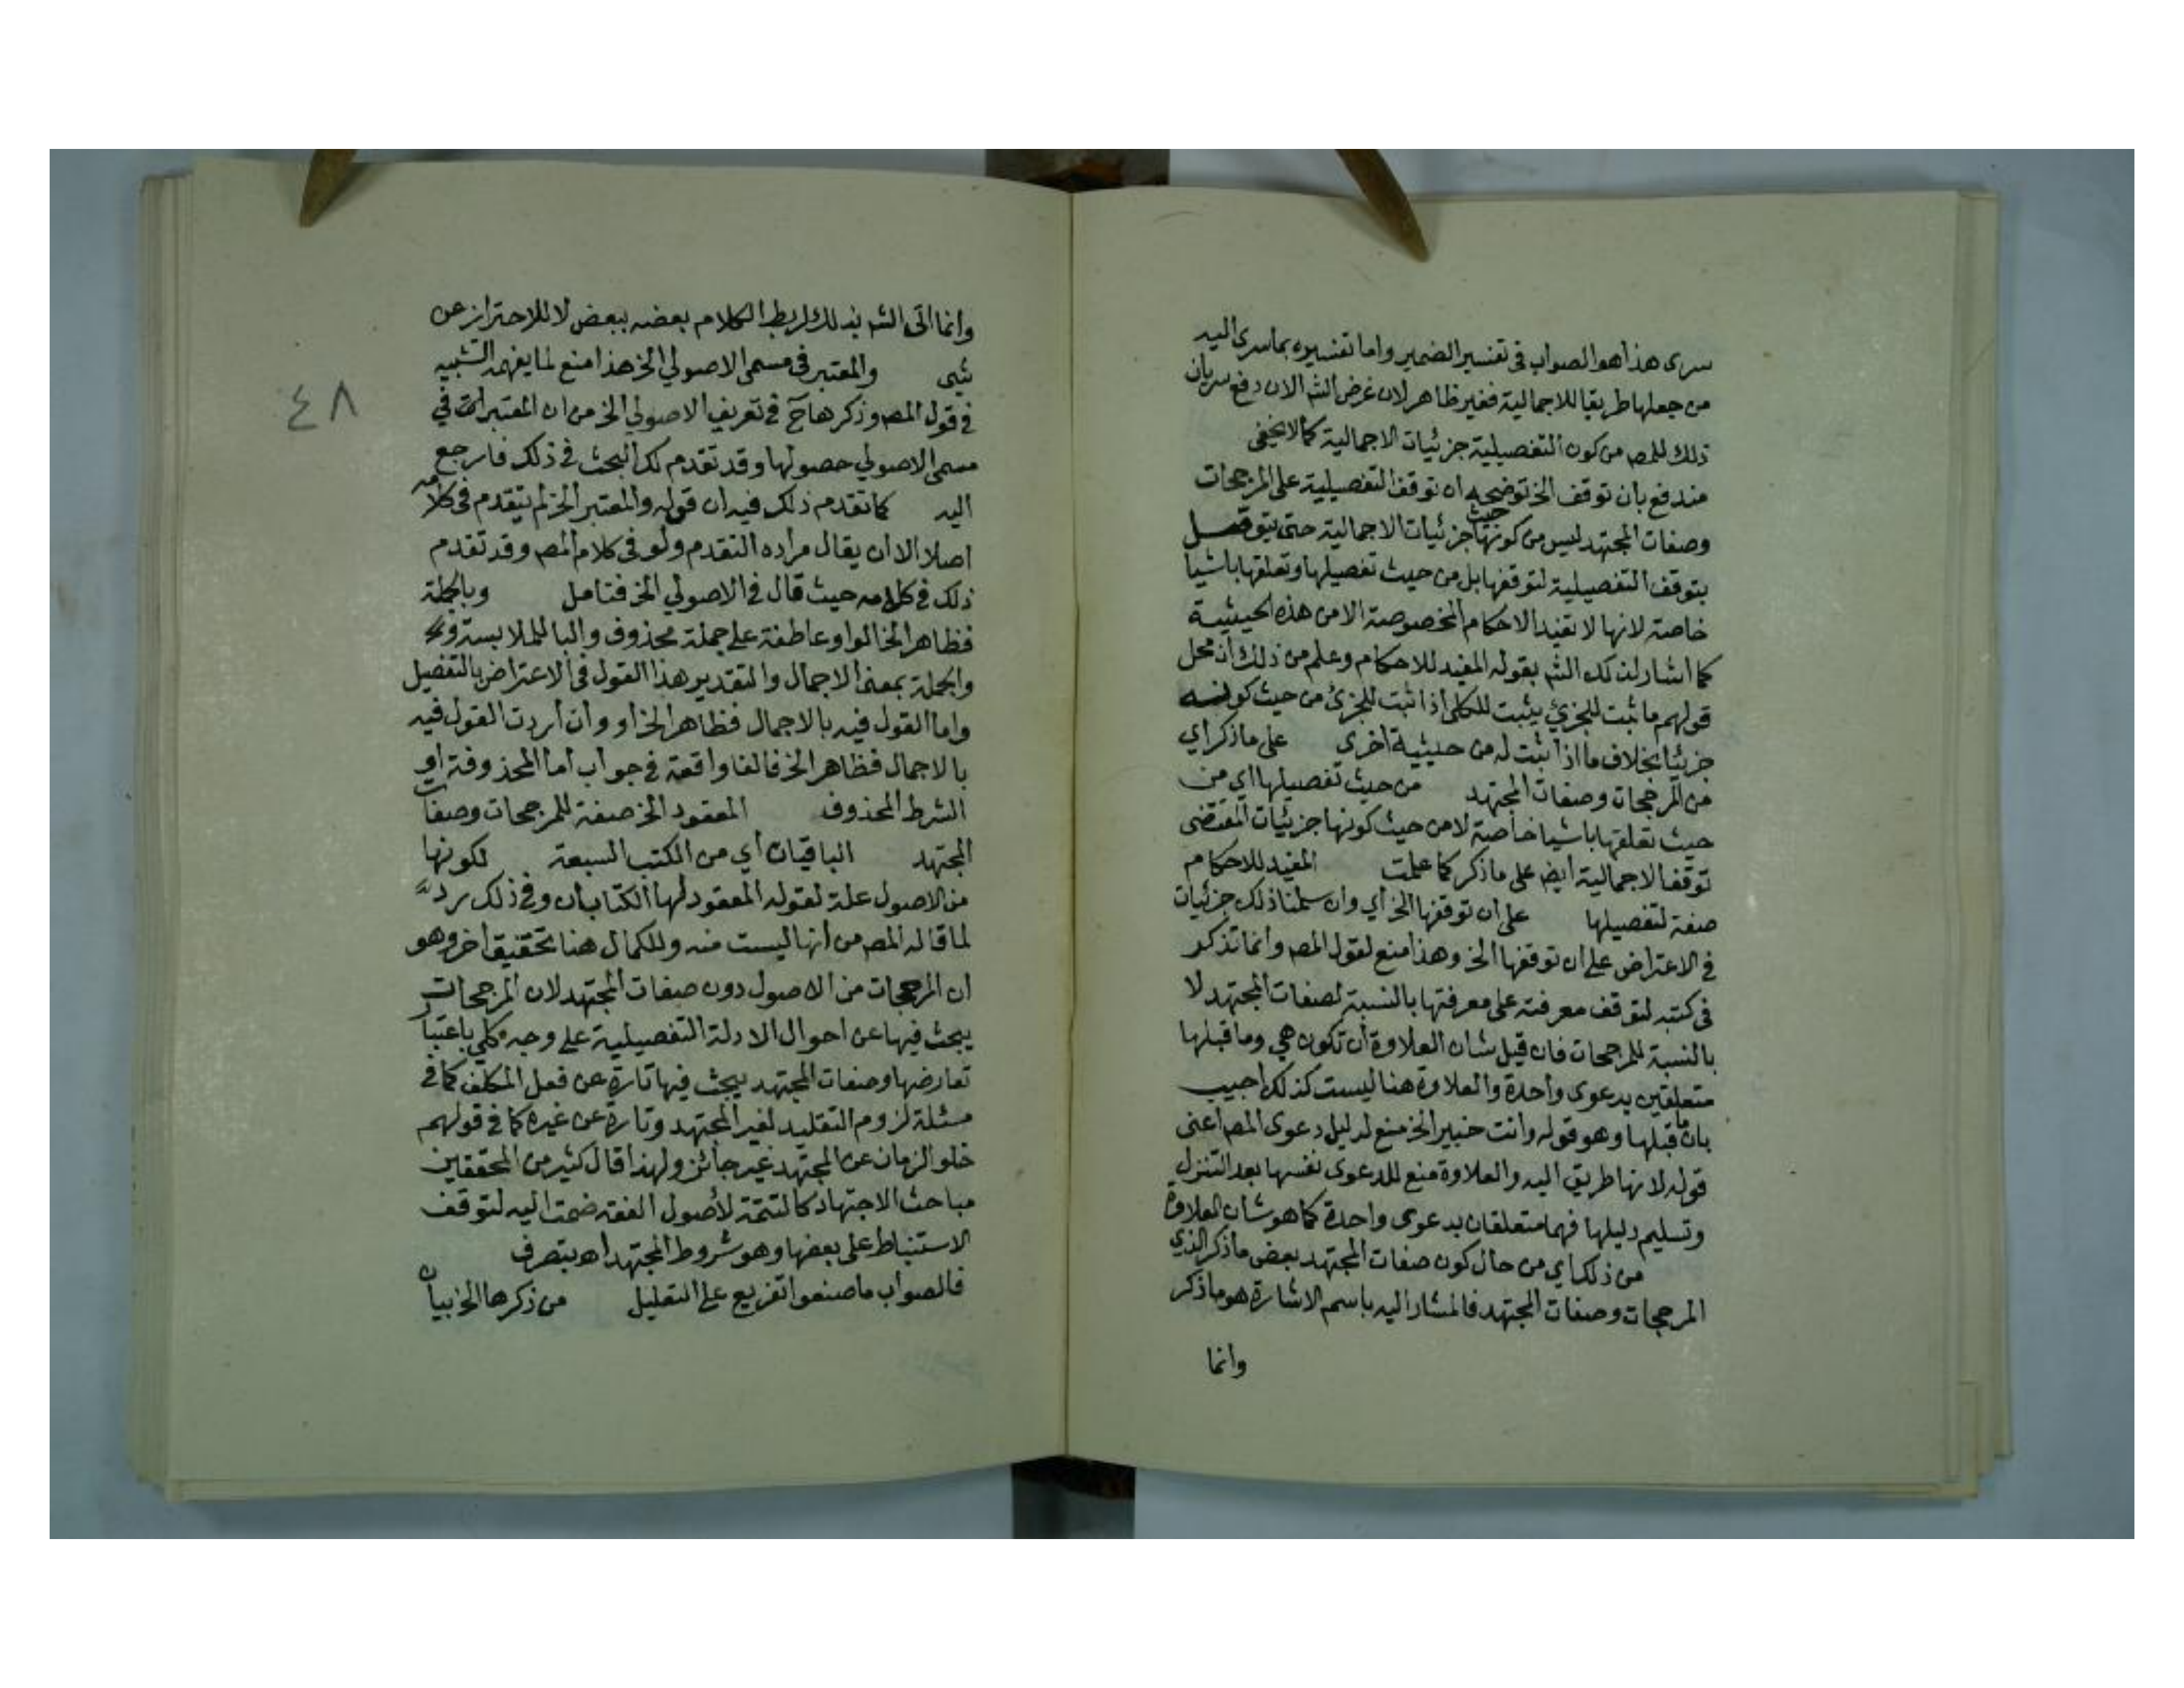 سرى هذا هو الصواب فى تفسير الضمير واما تفسيره بما سرى اليه
من جعلها طريقا للاجمالية فغير ظاهر لان غرض الشر الان دفع سريان
ذلك للمص من كون التفصيلية جزئيات الاجمالية كما لا يخفى
مندفع بأن توقف الخ توضيحه ان توقف التفصيلية على المرجحات
وصفات المجتهد ليس من حيث كونها جزئيات الاجمالية حتى يتوقف
بتوقف التفصيلية لتوقفها بل من حيث تفصيلها وتعلقها باشيا
خاصة لانها لا تفيد الاحكام المخصوصة الا من هذه الحيثية
كما اشار لذلك الشر بقوله المفيد للاحكام وعلم من ذلك أن محل
قولهم ما ثبت للجزئي يثبت للكلى اذا ثبت للجزئ من حيث كونه
جزئيا بخلاف ما اذا ثبت له من حيثية اخرى على ما ذكر أي
من المرجحات وصفات المجتهد من حيث تفصيلها اي من
حيث تعلقها باشيا خاصة لا من حيث كونها جزئيات المقتضى
توقف الاجمالية ايض على ما ذكر كما علمت المفيد للاحكام
صفة لتفصيلها على ان توقفها الخ أي وان سلمنا ذلك جزئيات
في الاعتراض على ان توقفها الخ وهذا منع لقول المص وانما تذكر
فى كتبه لتوقف معرفته على معرفتها بالنسبة لصفات المجتهد لا
بالنسبة للمرجحات فان قيل شان العلاوة أن تكون هي وما قبلها
متعلقين بدعوى واحدة والعلاوة هنا ليست كذلك اجيب
بان ما قبلها وهو قوله وانت خبير الخ منع لدليل دعوى المص اعنى
قوله لانها طريق اليه والعلاوة منع للدعوى نفسها بعد التنزل
وتسليم دليلها فهما متعلقان بدعوى واحدة كما هو شان العلاوة
من ذلك اي من حال كون صفات المجتهد بعض ما ذكر الذي
المرجحات وصفات المجتهد فالمشار اليه باسم الاشارة هو ما ذكر
وانما
٤٨
وانما اتى الشر بذلك لربط الكلام بعضه ببعض لا للاحتراز عن
شى والمعتبر فى مسمى الاصولي الخ هذا منع لما يفهمه التشبيه
في قول المص وذكرها ح في تعريف الاصولي الخ من ان المعتبر في
مسمى الاصولي حصولها وقد تقدم لك البحث في ذلك فارجع
اليه كما تقدم ذلك فيه ان قوله والمعتبر الخ لم يتقدم فى كلامه
اصلا الا ان يقال مراده التقدم ولو فى كلام المص وقد تقدم
ذلك في كلامه حيث قال في الاصولي الخ فتامل وبالجملة
فظاهر الخ الواو عاطفة على جملة محذوف والبا للملابسة
والجملة بمعنى الاجمال والتقدير هذا القول فى الاعتراض بالتفصيل
واما القول فيه بالاجمال فظاهر الخ او وان أردت القول فيه
بالاجمال فظاهر الخ فالفا واقعة في جواب أما المحذوفة او
الشرط المحذوف المعقود الخ صفة للمرجحات وصفات
المجتهد الباقيان أي من الكتب السبعة لكونها
من الاصول علة لقوله المعقود لها الكتابان وفي ذلك رد
لما قاله المص من أنها ليست منه وللكمال هنا تحقيق اخر وهو
ان المرجحات من الاصول دون صفات المجتهد لان المرجحات
يبحث فيها عن احوال الادلة التفصيلية على وجه كلي باعتبار
تعارضها وصفات المجتهد يبحث فيها تارة عن فعل المكلف كما في
مسئلة لزوم التقليد لغير المجتهد وتارة عن غيره كما في قولهم
خلو الزمان عن المجتهد غير جائز ولهذا قال كثير من المحققين
مباحث الاجتهاد كالتتمة لأصول الفقه ضمت اليه لتوقف
الاستنباط على بعضها وهو شروط المجتهد اه بتصرف
فالصواب ما صنعوا تفريع على التعليل من ذكرها الخ بيان